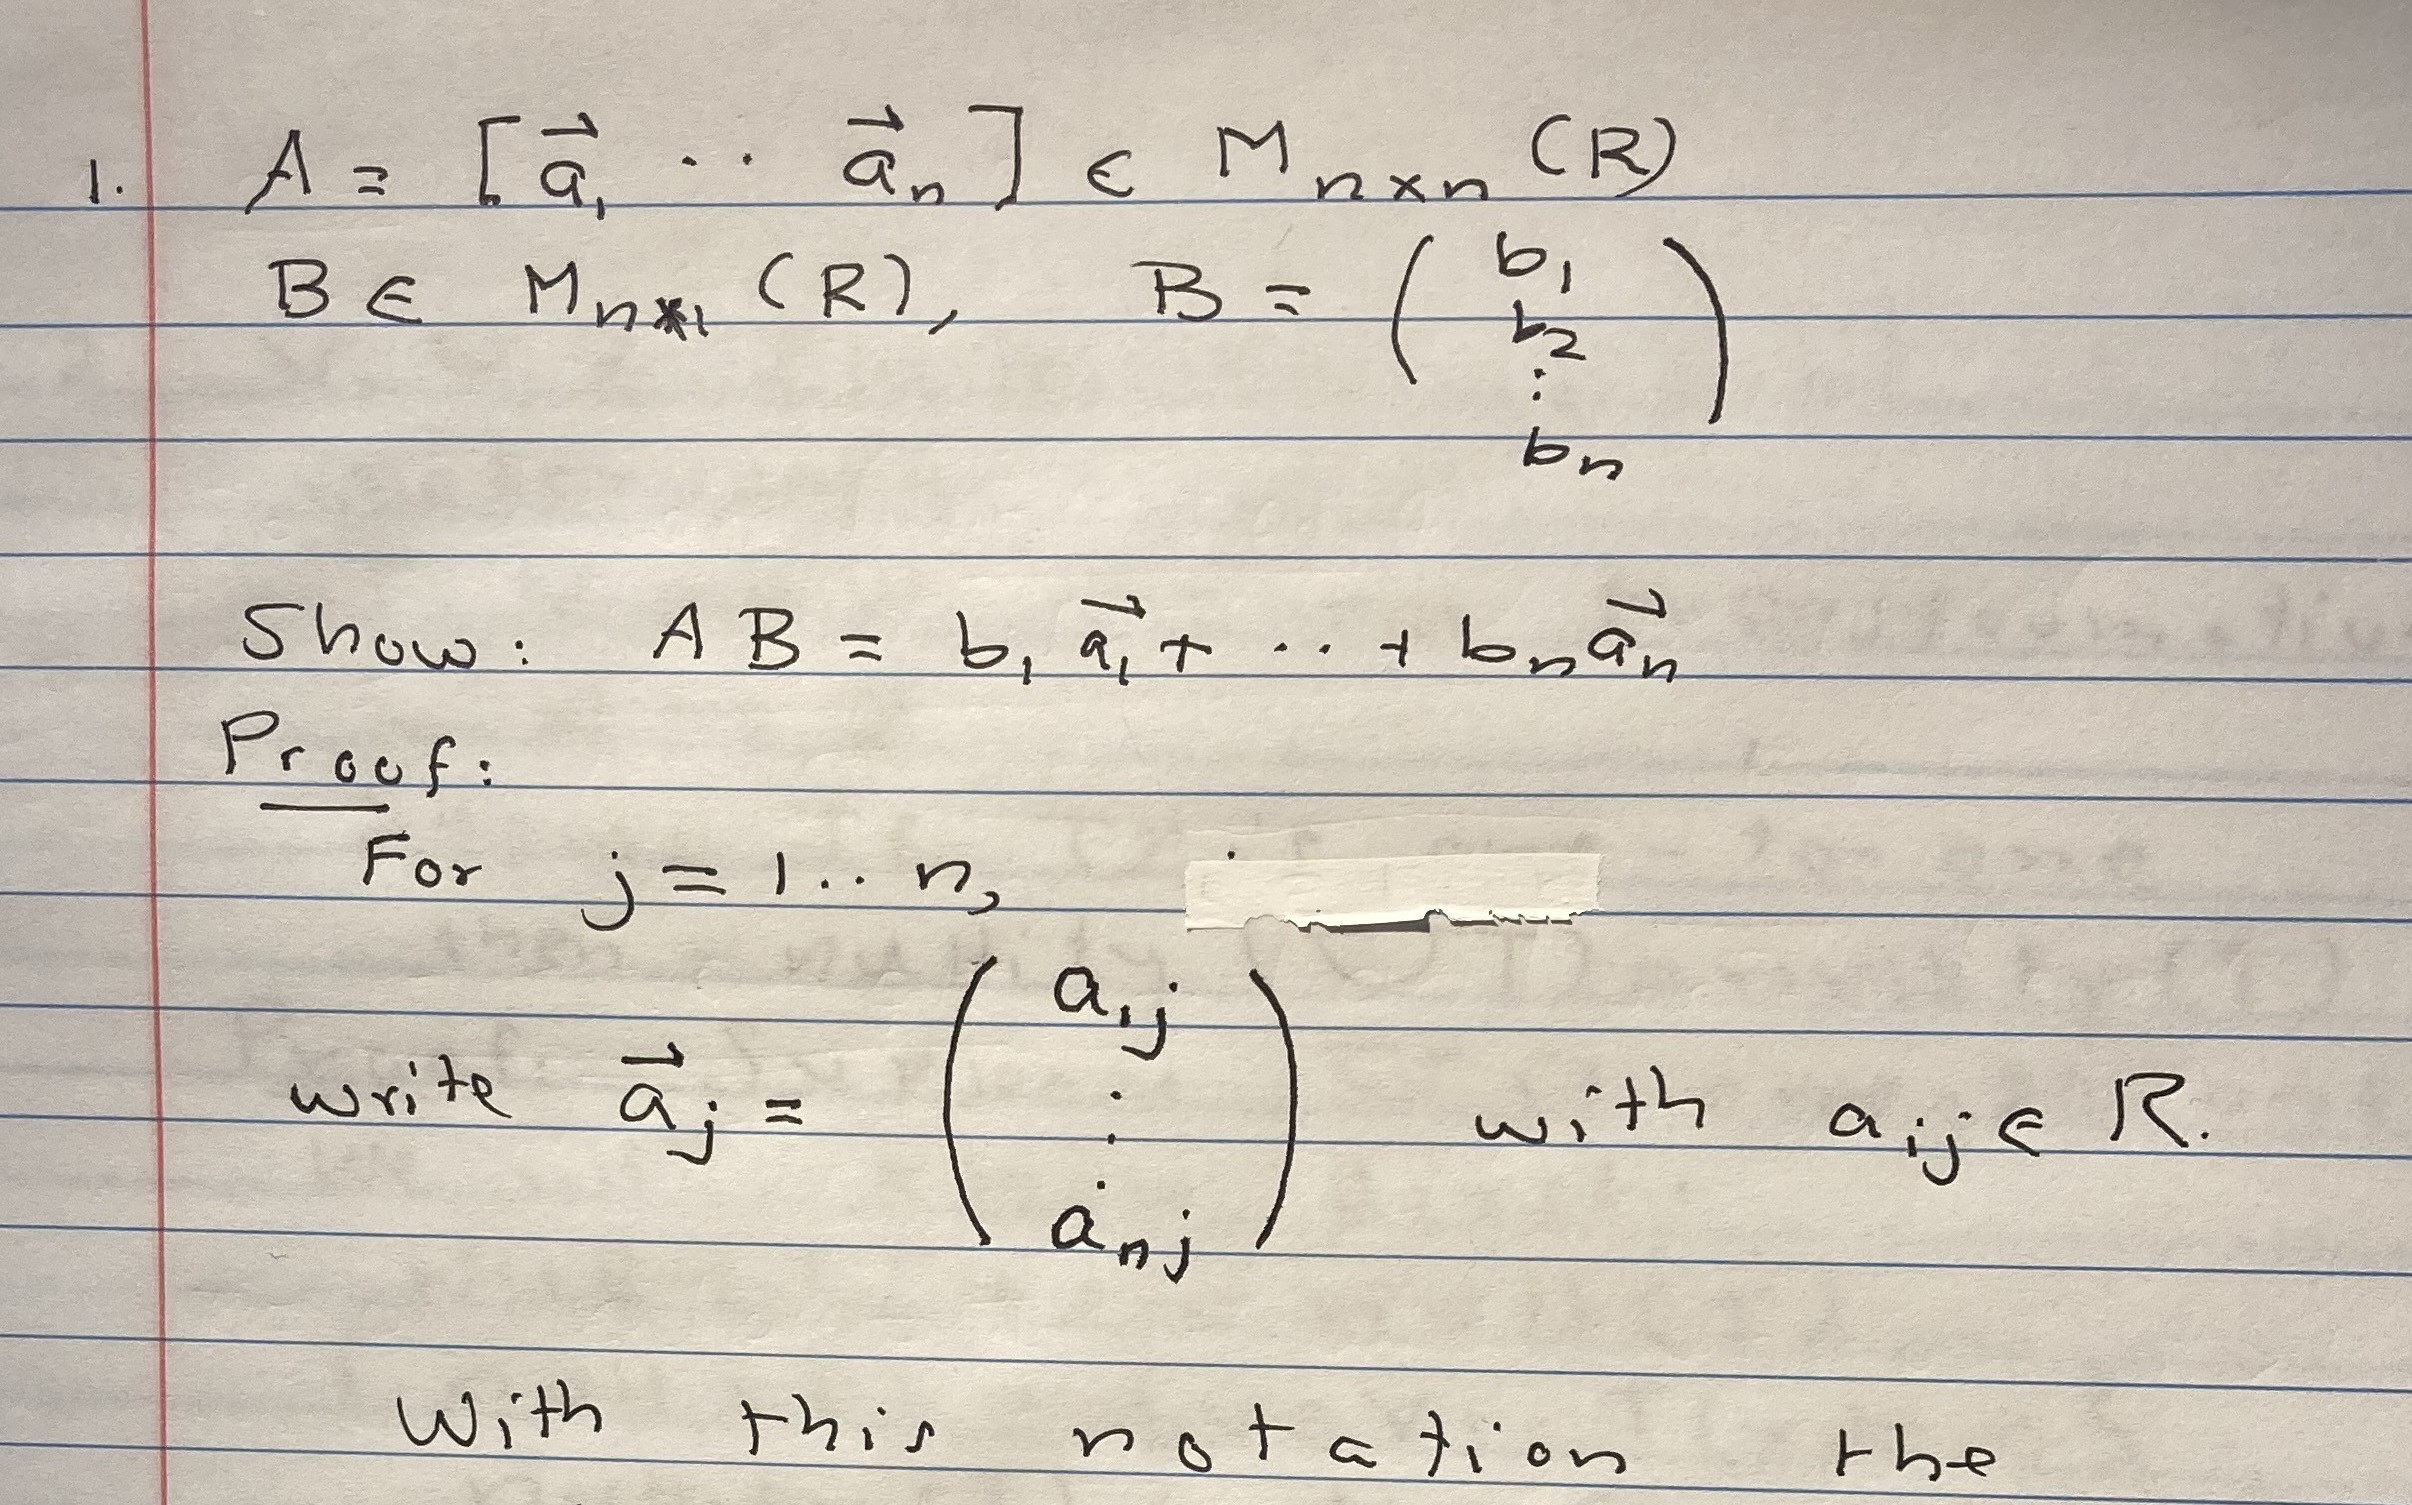 1. A = [a⃗₁ .. a⃗ₙ] ∈ Mₙₓₙ (R)
B ∈ Mₙₓ₁ (R), B = ( b₁
b₂
:
bₙ )
Show: AB = b₁ a⃗₁ + .. + bₙ a⃗ₙ
Proof:
For j = 1.. n,
write a⃗ⱼ = ( a₁ⱼ
⋮
aₙⱼ ) with aᵢⱼ ∈ R.
With this notation the